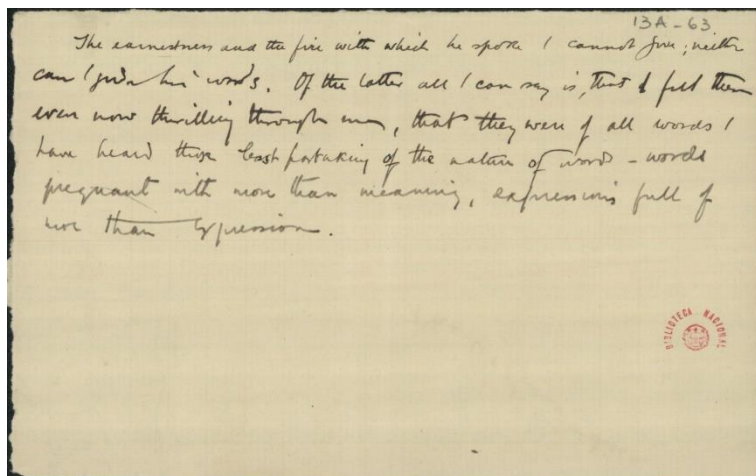 13A-63
The earnestness and the fire with which he spoke I cannot give; neither
can I give his words. Of the latter all I can say is, that I felt them
even now thrilling through me, that they were of all words I
have heard those least partaking of the nature of words - words
pregnant with more than meaning, expressions full of
more than expression.
BIBLIOTECA NACIONAL